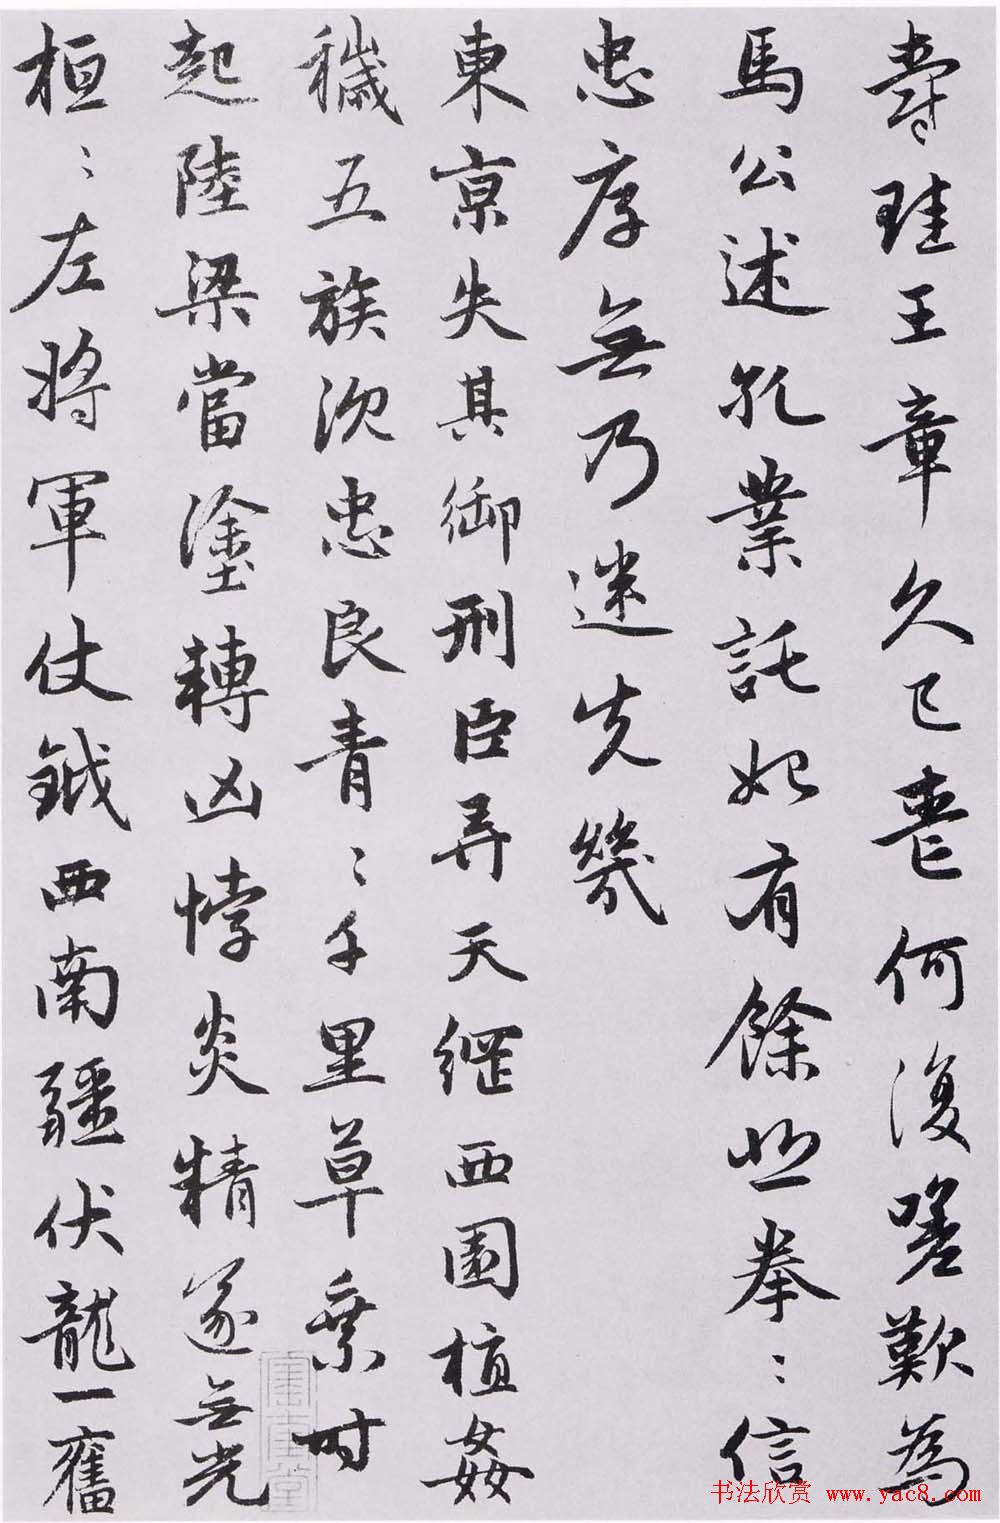 爵珪王章久已喪何復嗟歎為
馬公述孔業託始有餘悲拳〻信
忠厚無乃迷先幾
東京失其御刑臣弄天綱西園植姦
穢五族沈忠良青〻千里草乘時
起陸梁當塗轉凶悖炎精遂無光
桓〻左將軍仗鉞西南疆伏龍一奮
书法欣赏 www.yac8.com